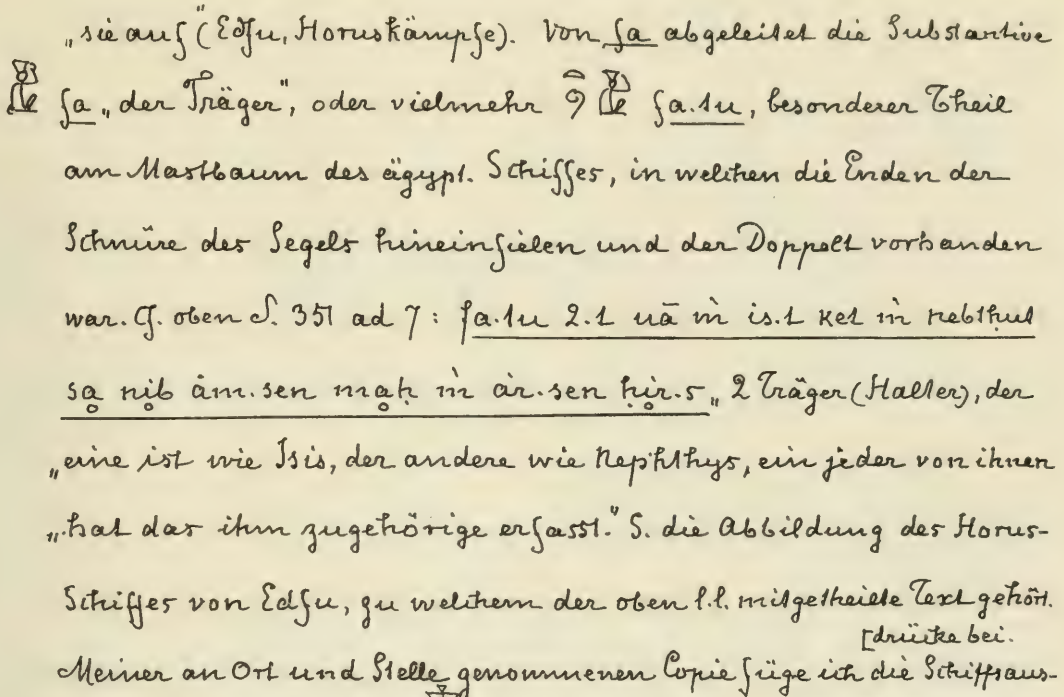 „sie auf“ (Edfu, Horuskämpfe). Von fa abgeleitet die Substantive
fa „der Träger“, oder vielmehr fa.tu, besonderer Theil
am Mastbaum des ägypt. Schiffes, in welchen die Enden der
Schnüre des Segels hineinfielen und der Doppelt vorhanden
war. Cf. oben S. 351 ad 7: fa.tu 2.t uā ṁ is.t ket ṁ nebthut
sa nib ȧm.sen mah ṁ ȧr.sen hir.s „2 Träger (Halter), der
„eine ist wie Isis, der andere wie Nephthys, ein jeder von ihnen
„hat das ihm zugehörige erfasst.“ S. die Abbildung des Horus-
Schiffes von Edfu, zu welchem der oben l.l. mitgetheilte Text gehört.
[drücke bei.
Meiner an Ort und Stelle genommenen Copie füge ich die Schiffsaus-